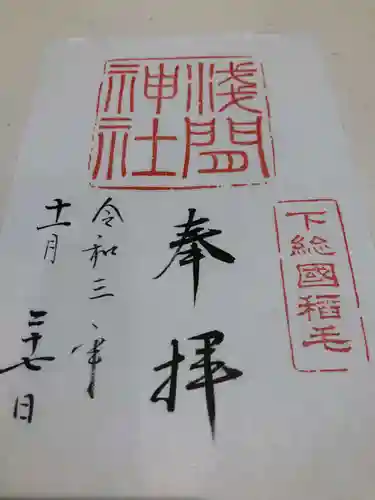 下総國稲毛
浅間
神社
奉拝
令和三年
十一月二十七日